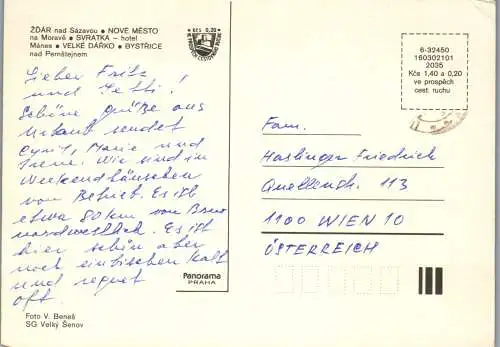 ŽĎÁR nad Sázavou • NOVÉ MĚSTO
na Moravě • SVRATKA – hotel
Mánes • VELKÉ DÁŘKO • BYSTŘICE
nad Pernštejnem
KČS 0,20
Lieber Fritz
und Jetti!
Schöne Grüße aus
Urlaub sendet
Cyril, Marie und
Irene. Wir sind in
Weekendhäuschen
von Betrieb. Es ist
etwa 80 km von Brno
nordwestlich. Es ist
hier schön aber
noch einbischen kalt
und regnet
oft.
Foto V. Beneš
SG Velký Šenov
Panorama
PRAHA
6-32450
160302101
2035
Kčs 1,40 a 0,20
ve prospěch
cest. ruchu
Fam.
Haslinger Friedrich
Quellenstr. 113
1100 WIEN 10
ÖSTERREICH